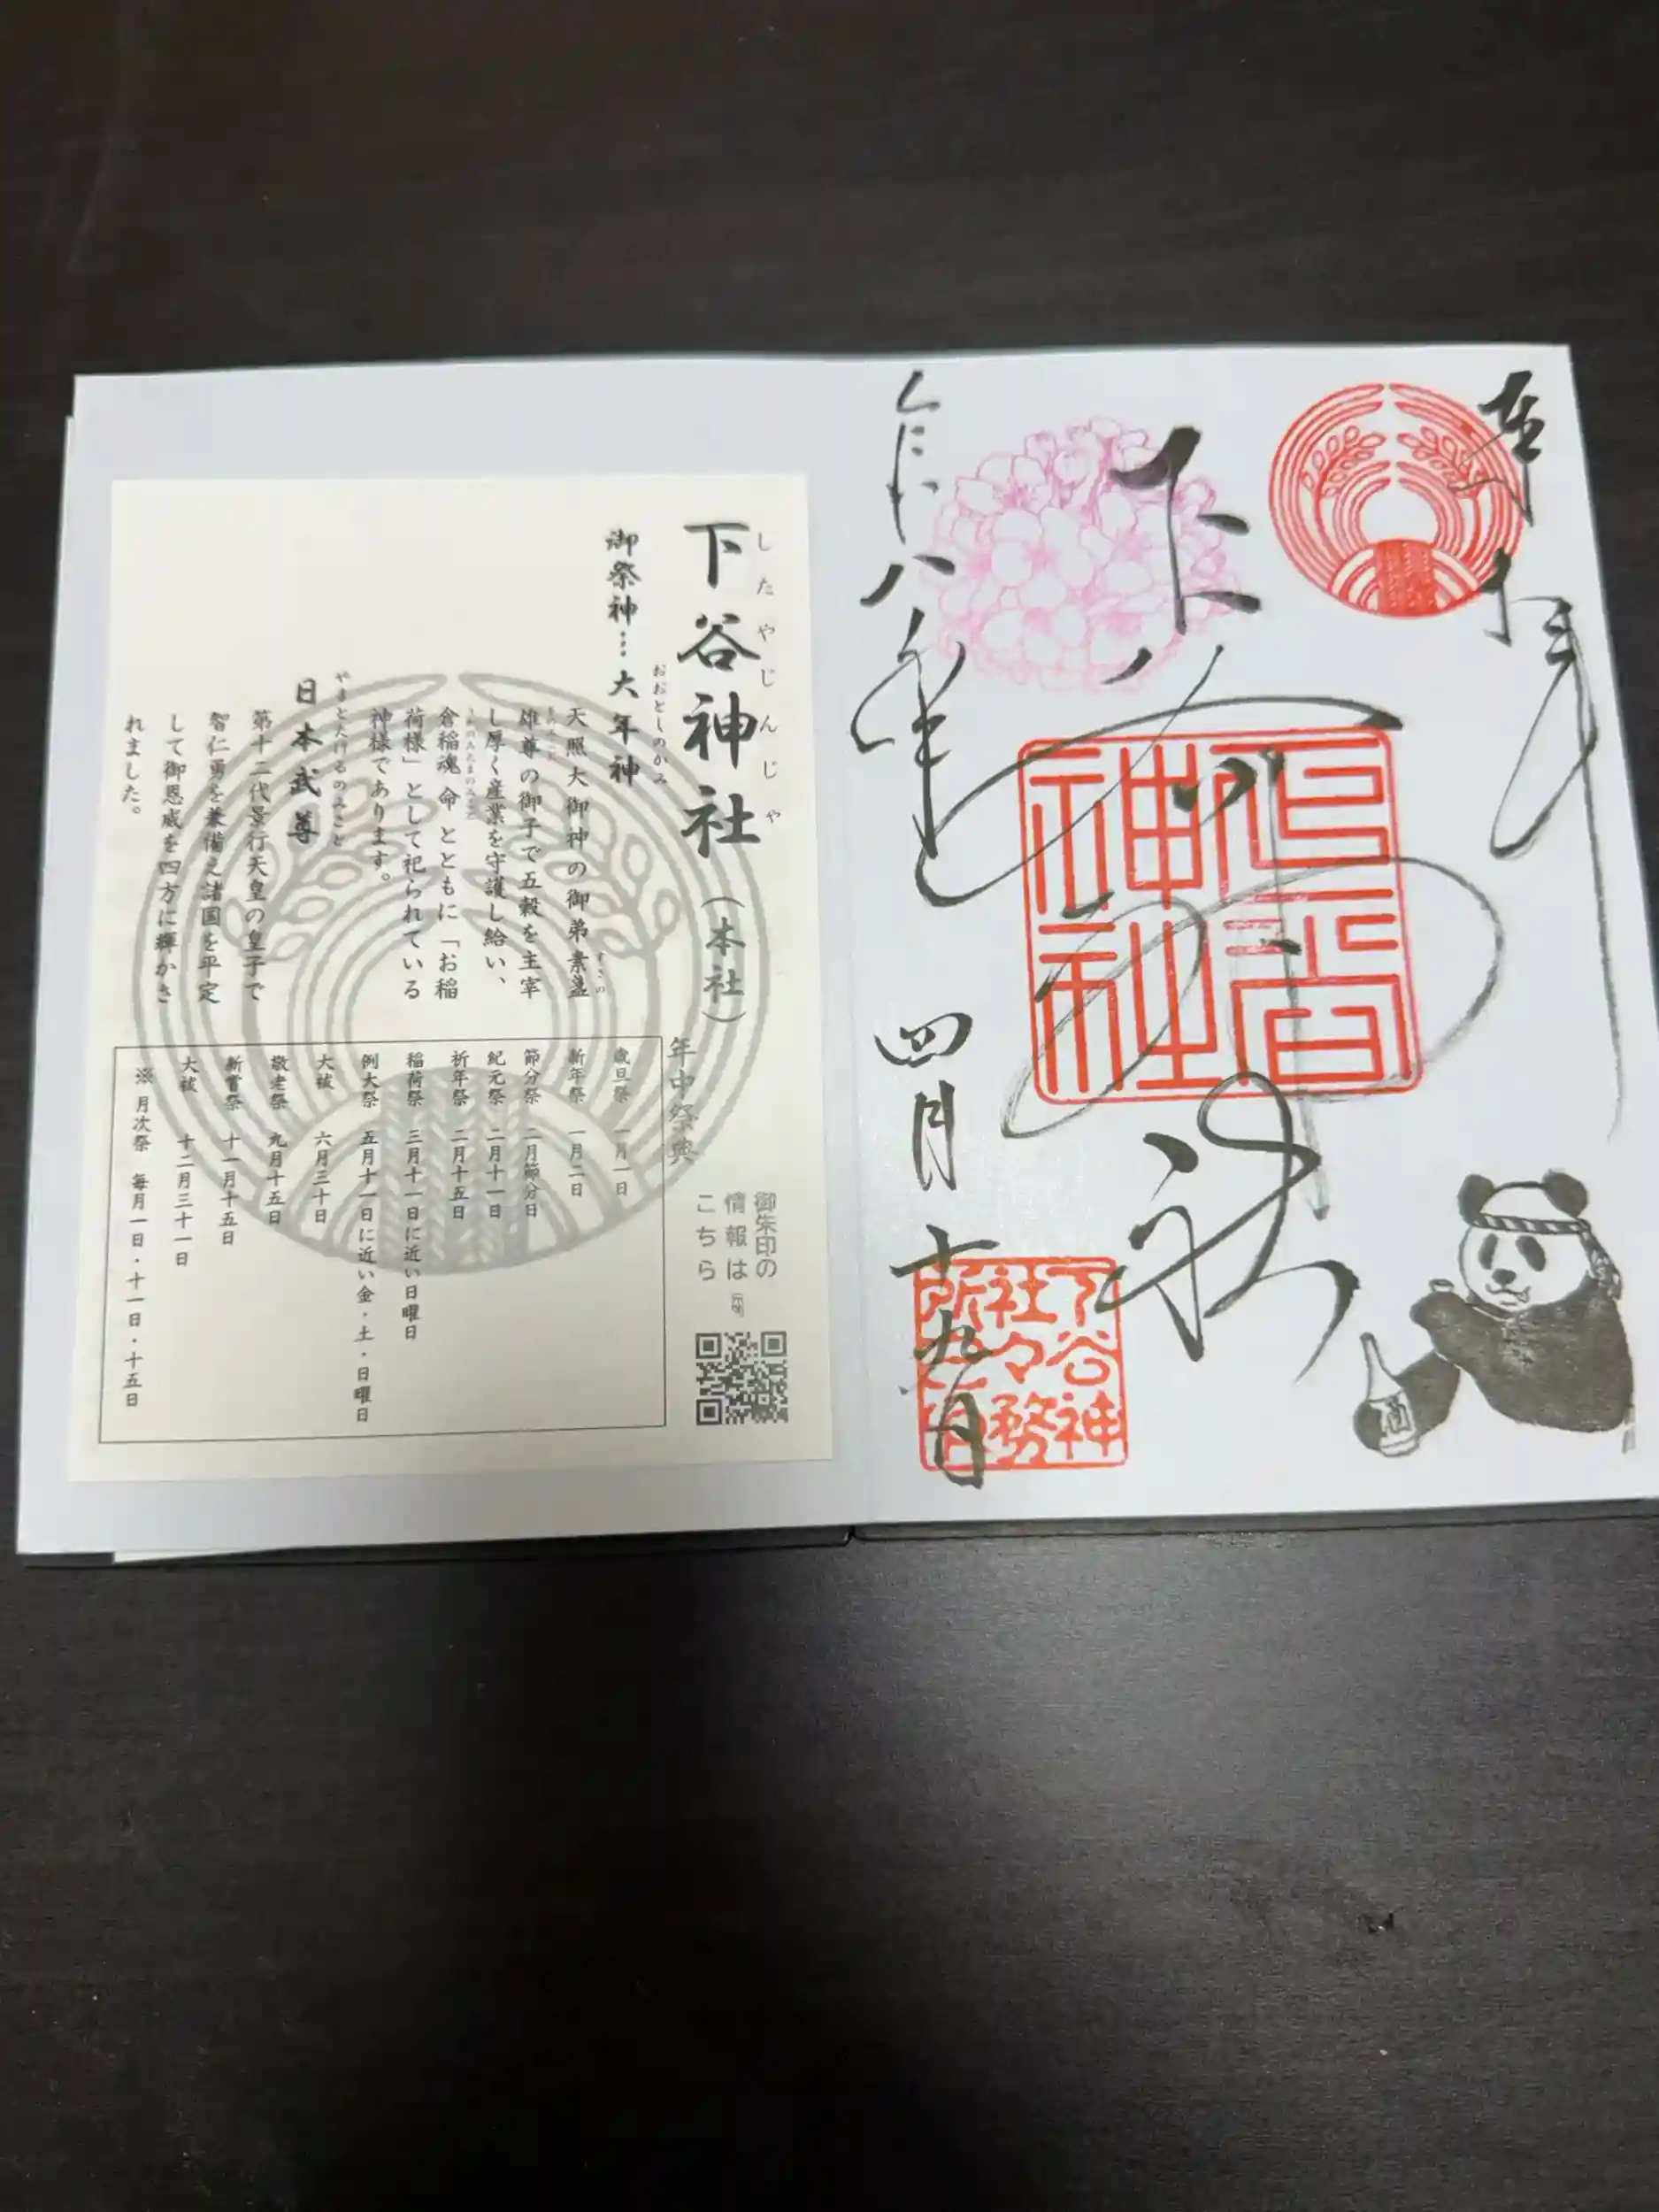 奉拝
下谷神社
令和八年 四月 十九日
下谷神社
下谷神
社々務
酒
下谷神社（本社）
したやじんじゃ
御祭神…大年神
おおとしのかみ
天照大御神の御弟素盞
すさの
雄尊の御子で五穀を主宰
し厚く産業を守護し給い、
倉稲魂命とともに「お稲
荷様」として祀られている
神様であります。
やまとたけるのみこと
日本武尊
第十二代景行天皇の皇子で
智仁勇を兼備え諸国を平定
して御恩威を四方に輝かさ
れました。
御朱印の
情報は
こちら
年中祭典
歳旦祭 一月一日
新年祭 一月二日
節分祭 二月節分日
紀元祭 二月十一日
祈年祭 二月十五日
稲荷祭 三月十一日に近い日曜日
例大祭 五月十一日に近い金・土・日曜日
大祓 六月三十日
敬老祭 九月十五日
新嘗祭 十一月十五日
大祓 十二月三十一日
※ 月次祭 毎月一日・十一日・十五日